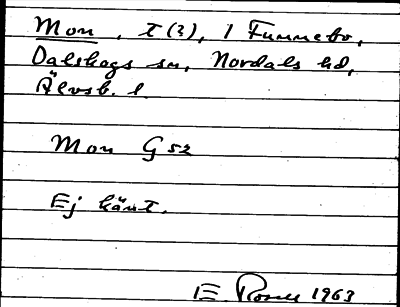 Mon, t (?), i Fummebo,
Dalskogs sn, Nordals hd,
Älvsb. l.
Mon G 52
Ej känt.
E Rosell 1963